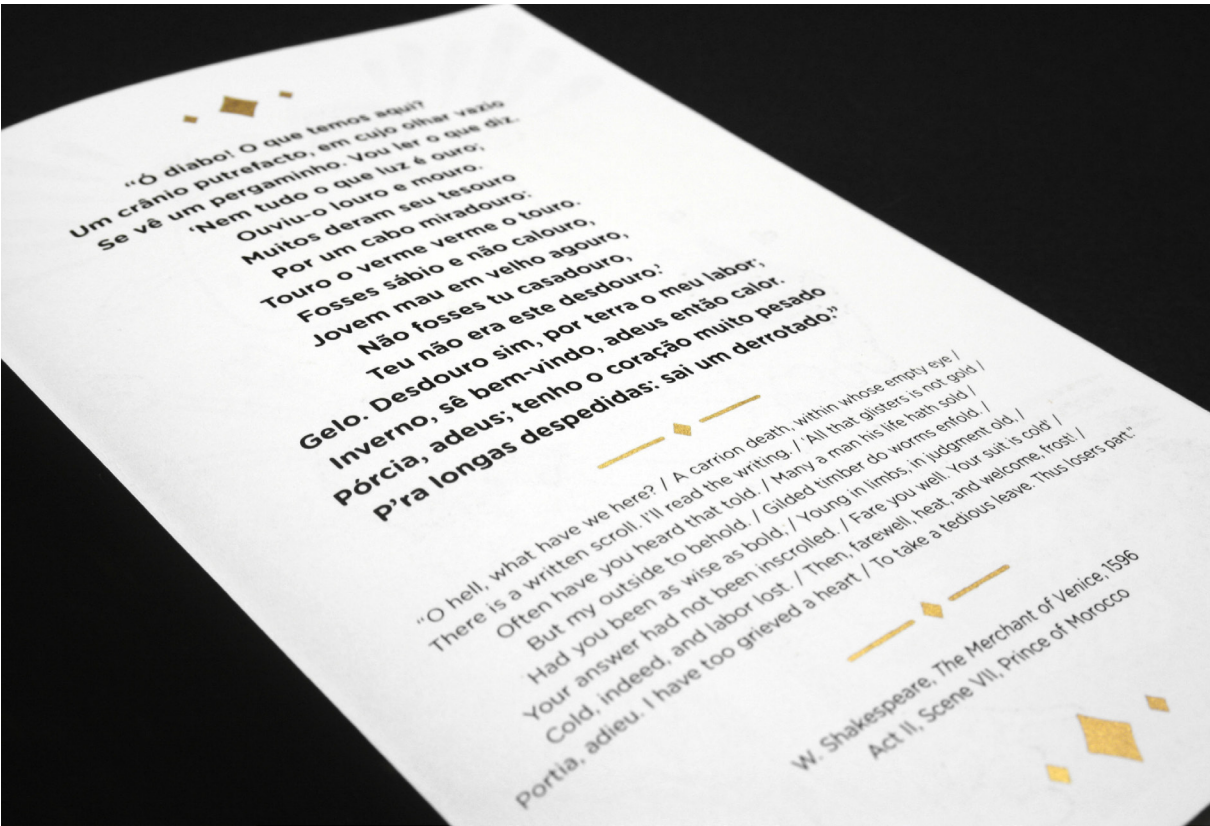 “Ó diabo! O que temos aqui?
Um crânio putrefacto, em cujo olhar vazio
Se vê um pergaminho. Vou ler o que diz.
‘Nem tudo o que luz é ouro;
Ouviu-o louro e mouro.
Muitos deram seu tesouro
Por um cabo miradouro:
Touro o verme verme o touro.
Fosses sábio e não calouro,
Jovem mau em velho agouro,
Não fosses tu casadouro,
Teu não era este desdouro.’
Gelo. Desdouro sim, por terra o meu labor;
Inverno, sê bem-vindo, adeus então calor.
Pórcia, adeus; tenho o coração muito pesado
P’ra longas despedidas: sai um derrotado.”
“O hell, what have we here? / A carrion death, within whose empty eye /
There is a written scroll. I’ll read the writing. / ‘All that glisters is not gold /
Often have you heard that told. / Many a man his life hath sold /
But my outside to behold. / Gilded timber do worms enfold. /
Had you been as wise as bold, / Young in limbs, in judgment old, /
Your answer had not been inscrolled. / Fare you well. Your suit is cold’ /
Cold, indeed, and labor lost. / Then, farewell, heat, and welcome, frost! /
Portia, adieu. I have too grieved a heart / To take a tedious leave. Thus losers part.”
W. Shakespeare, The Merchant of Venice, 1596
Act II, Scene VII, Prince of Morocco